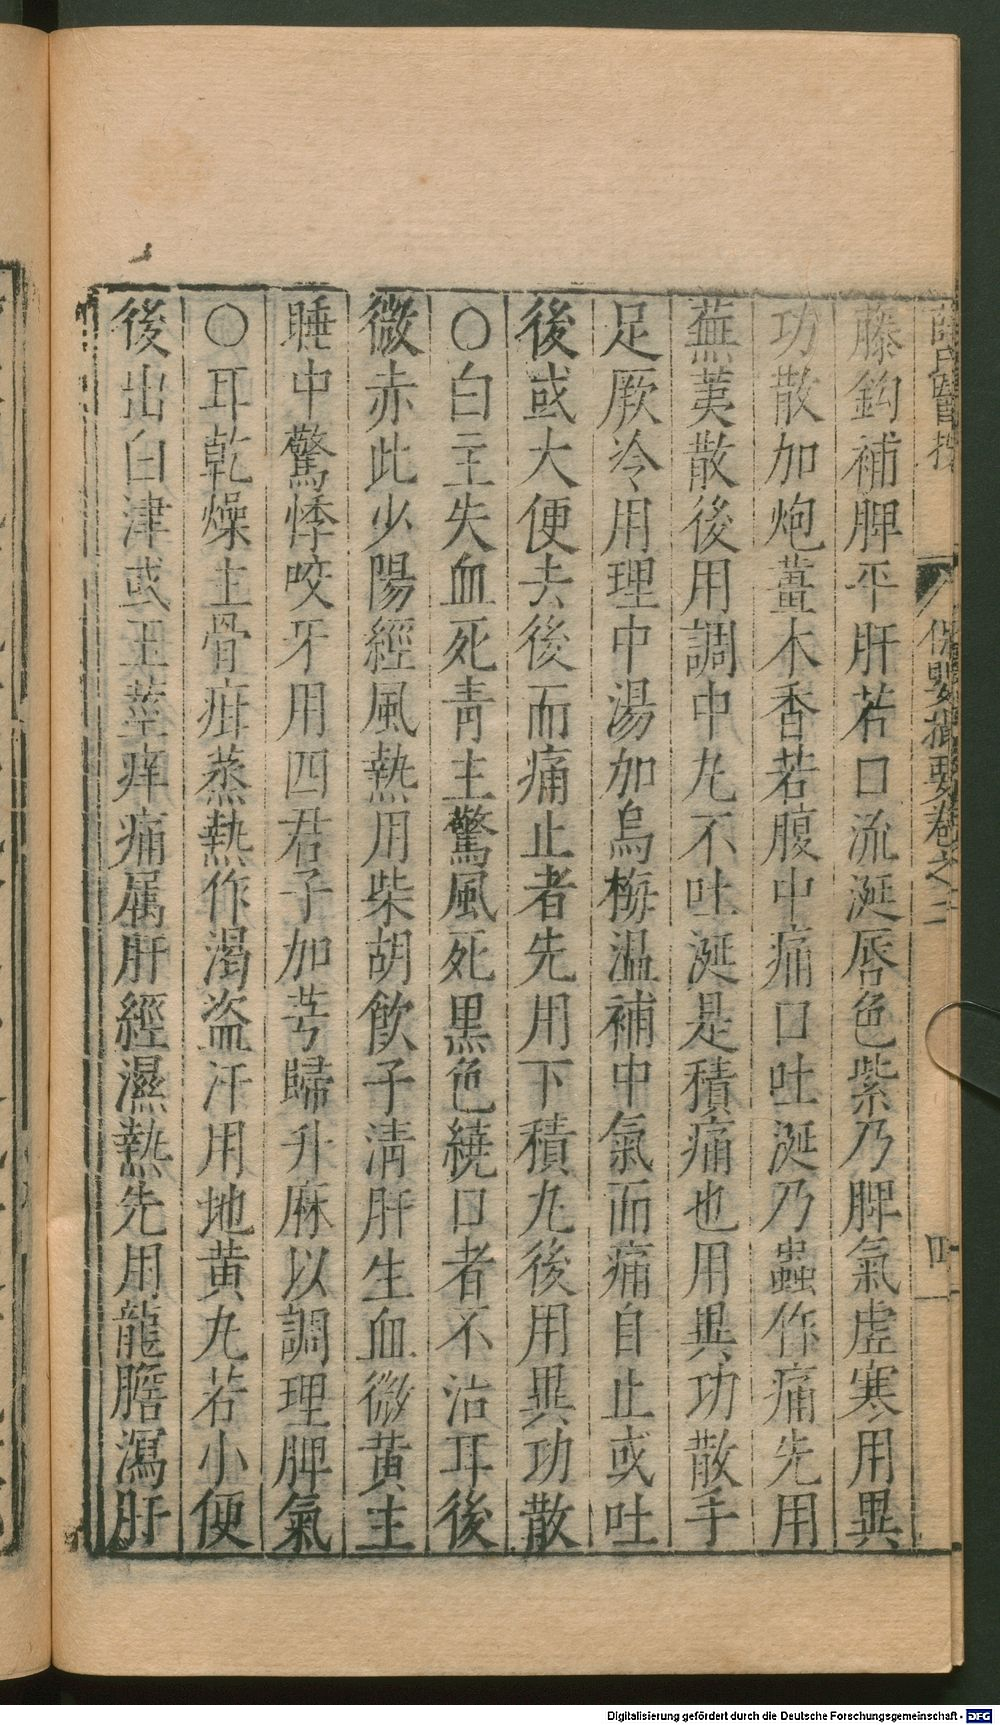 薛氏醫按 保嬰撮要卷之二 四
藤鈎補脾平肝若口流涎唇色紫乃脾氣虛寒用異
功散加炮薑木香若腹中痛口吐涎乃蟲作痛先用
蕪荑散後用調中丸不吐涎是積痛也用異功散手
足厥冷用理中湯加烏梅溫補中氣而痛自止或吐
後或大便去後而痛止者先用下積丸後用異功散
○白主失血死青主驚風死黑色繞口者不治耳後
微赤此少陽經風熱用柴胡飲子清肝生血微黃主
睡中驚悸咬牙用四君子加芎歸升麻以調理脾氣
○耳乾燥主骨疳蒸熱作渴盜汗用地黃丸若小便
後出白津或玉莖痒痛屬肝經濕熱先用龍膽瀉肝
Digitalisierung gefördert durch die Deutsche Forschungsgemeinschaft - DFG